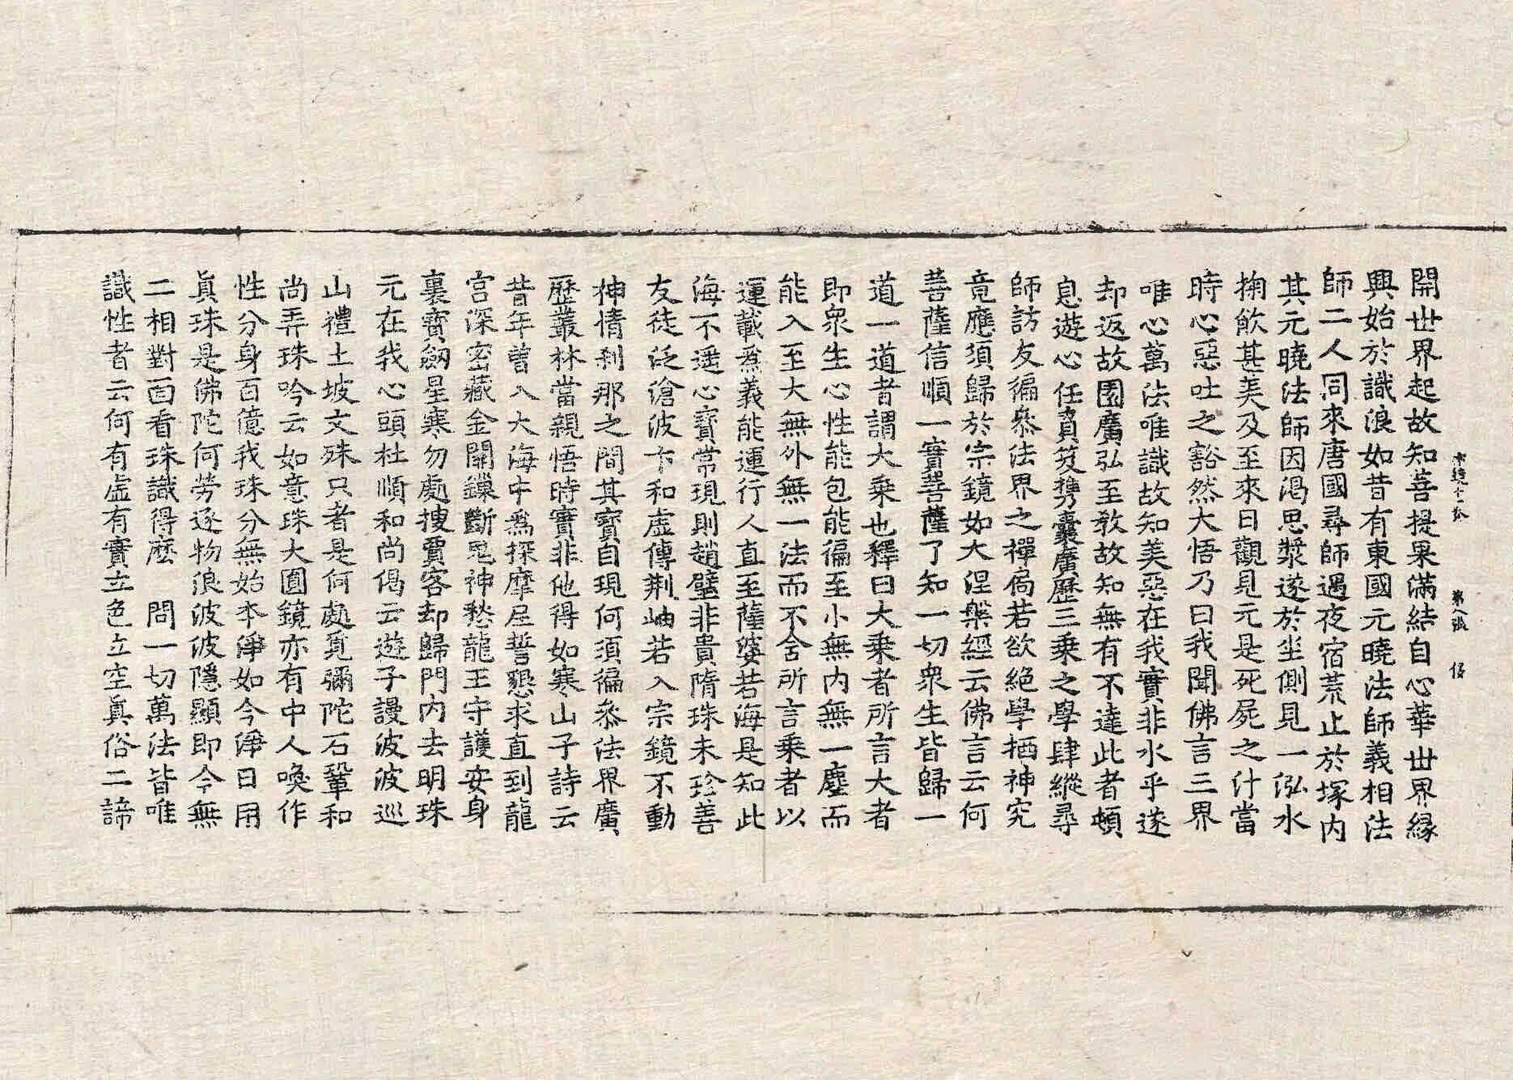 開世界起故知菩提果滿結自心華世界緣
興始於識浪如昔有東國元曉法師義相法
師二人同來唐國尋師遇夜宿荒止於塚内
其元曉法師因渴思漿遂於坐側見一泓水
掬飲甚美及至來日觀見元是死屍之汁當
時心惡吐之豁然大悟乃曰我聞佛言三界
唯心萬法唯識故知美惡在我實非水乎遂
却返故園廣弘至教故知無有不達此者頓
息遊心任負笈攜囊廣歷三乘之學肆縱尋
師訪友徧叅法界之禪扃若欲絕學栖神究
竟應須歸於宗鏡如大涅槃經云佛言云何
菩薩信順一實菩薩了知一切衆生皆歸一
道一道者謂大乘也釋曰大乘者所言大者
即衆生心性能包能徧至小無内無一塵而
能入至大無外無一法而不含所言乘者以
運載爲義能運行人直至薩婆若海是知此
海不遥心寶常現則趙璧非貴隋珠未珍善
友徒泛滄波卞和虛傳荆岫若入宗鏡不動
神情刹那之間其寶自現何須徧叅法界廣
歷叢林當親悟時實非他得如寒山子詩云
昔年曾入大海中爲探摩尼誓懇求直到龍
宮深密藏金關鏁斷鬼神愁龍王守護安身
裏寶劒星寒勿處搜賈客却歸門内去明珠
元在我心頭杜順和尚偈云遊子謾波波巡
山禮土坡文殊只者是何處覓彌陀石鞏和
尚弄珠吟云如意珠大圓鏡亦有中人喚作
性分身百億我珠分無始本淨如今淨日用
眞珠是佛陀何勞逐物浪波波隱顯即今無
二相對面看珠識得麽　問一切萬法皆唯
識性者云何有虛有實立色立空真俗二諦